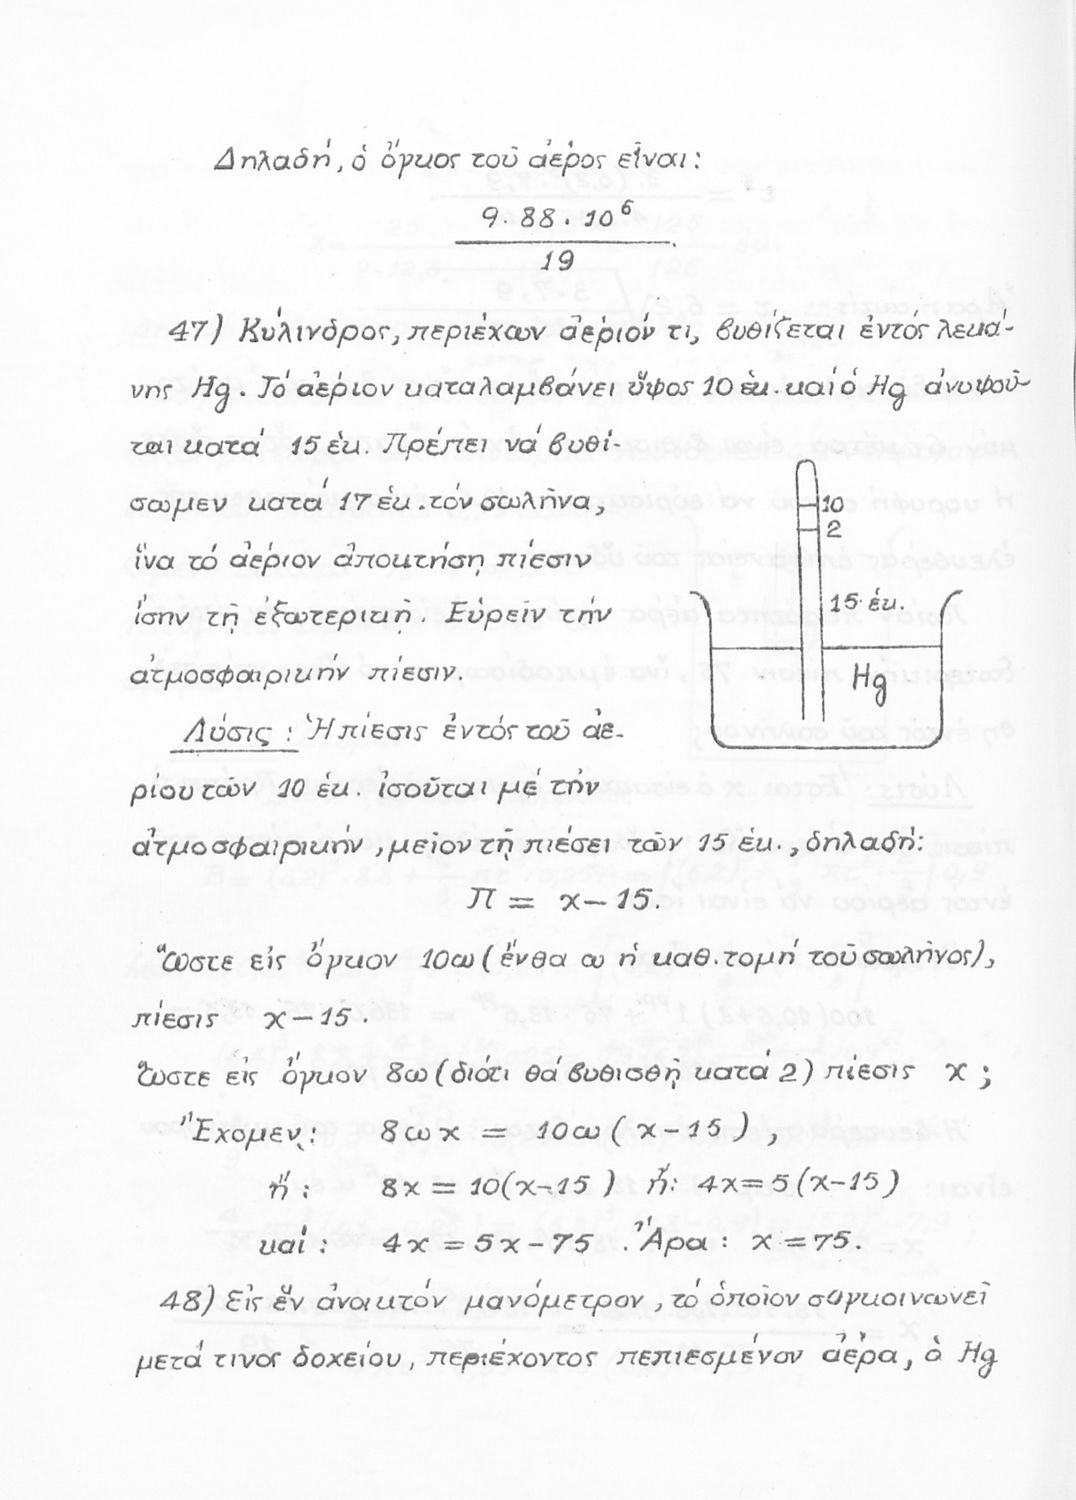 Δηλαδή, ὁ ὄγκος τοῦ ἀέρος εἶναι:
9·88·10⁶
19
47) Κύλινδρος, περιέχων ἀέριόν τι, βυθίζεται ἐντός λεκά-
νης Hg. Τό ἀέριον καταλαμβάνει ὕψος 10 ἑκ. καί ὁ Hg ἀνυψοῦ-
ται κατά 15 ἑκ. Πρέπει νά βυθί-
σωμεν κατά 17 ἑκ. τόν σωλῆνα,
ἵνα τό ἀέριον ἀποκτήσῃ πίεσιν
ἴσην τῇ ἐξωτερικῇ. Εὑρεῖν τήν
ἀτμοσφαιρικήν πίεσιν.
10
2
15 ἑκ.
Hg
Λύσις: Ἡ πίεσις ἐντός τοῦ ἀε-
ρίου τῶν 10 ἑκ. ἰσοῦται μέ τήν
ἀτμοσφαιρικήν, μεῖον τῇ πιέσει τῶν 15 ἑκ., δηλαδή:
Π = x-15.
Ὥστε εἰς ὄγκον 10ω (ἔνθα ω ἡ καθ. τομή τοῦ σωλῆνος),
πίεσις x-15.
Ὥστε εἰς ὄγκον 8ω (διότι θά βυθισθῇ κατά 2) πίεσις x;
Ἔχομεν: 8ωx = 10ω(x-15),
ἤ: 8x = 10(x-15) ἤ: 4x=5(x-15)
καί: 4x = 5x-75. Ἄρα: x=75.
48) Εἰς ἕν ἀνοικτόν μανόμετρον, τό ὁποῖον συγκοινωνεῖ
μετά τινος δοχείου, περιέχοντος πεπιεσμένον ἀέρα, ὁ Hg